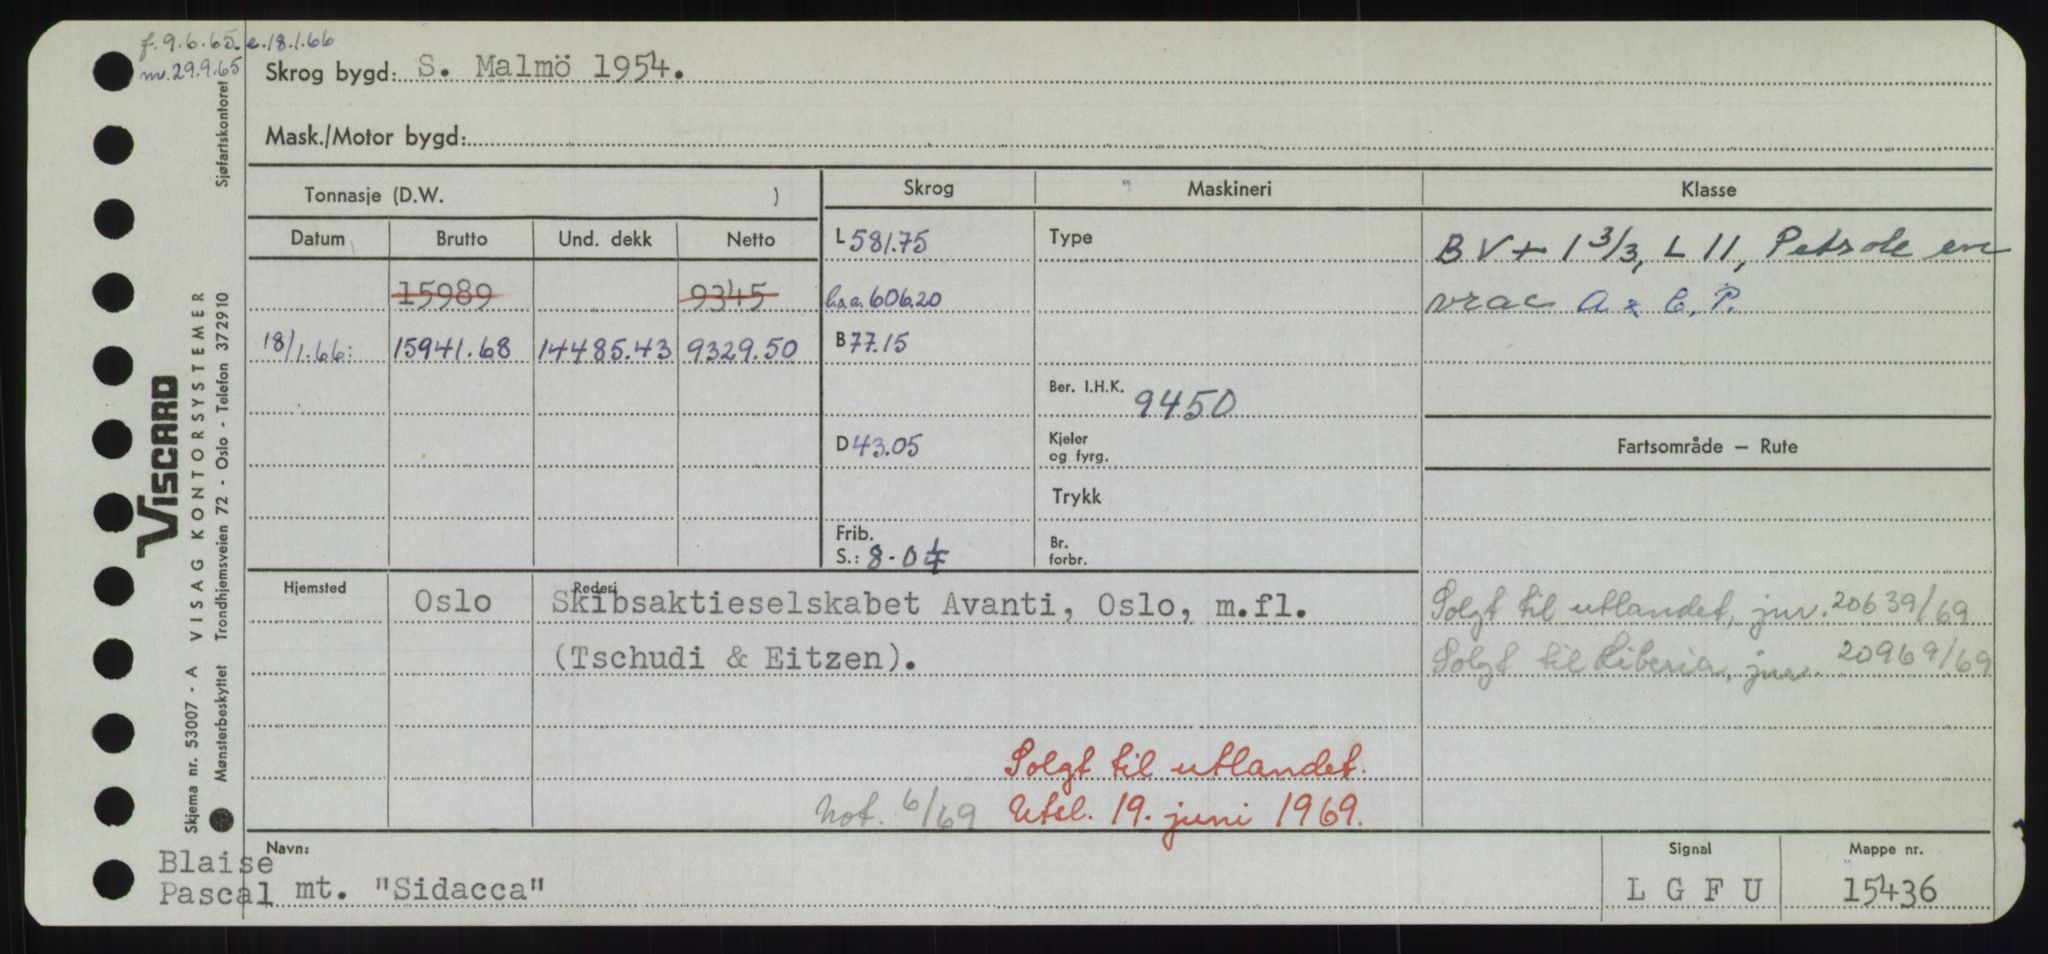 f. 9.6.65. e. 18.1.66
m. 29.9.65
Skrog bygd: S. Malmö 1954.
Mask./Motor bygd:
Tonnasje (D.W. )
Skrog
Maskineri
Klasse
Datum Brutto Und. dekk Netto
L 581.75
Type
BV + 1 3/3, L 11, Petrole en
15989 9345
606.20
vrac A & C.P.
18/1.66: 15941.68 14485.43 9329.50
B 77.15
Ber. I.H.K. 9450
D 43.05
Kjeler
og fyrg.
Fartsområde — Rute
Trykk
Frib.
S.: 8-04
Br.
forbr.
Hjemsted Oslo
Rederi
Skibsaktieselskabet Avanti, Oslo, m.fl.
(Tschudi & Eitzen).
Solgt til utlandet, jnr. 20639/69
Solgt til Liberia, jnr. 20969/69
Solgt til utlandet.
Not. 6/69 Utsl. 19. juni 1969.
Navn:
Blaise
Pascal mt. "Sidacca"
Signal
L G F U
Mappe nr.
15436
Sjøfartskontoret
VISCARD
VISAG KONTORSYSTEMER
Skjema nr. 53007 - A
Mønsterbeskyttet Trondhjemsveien 72 - Oslo - Telefon 372910